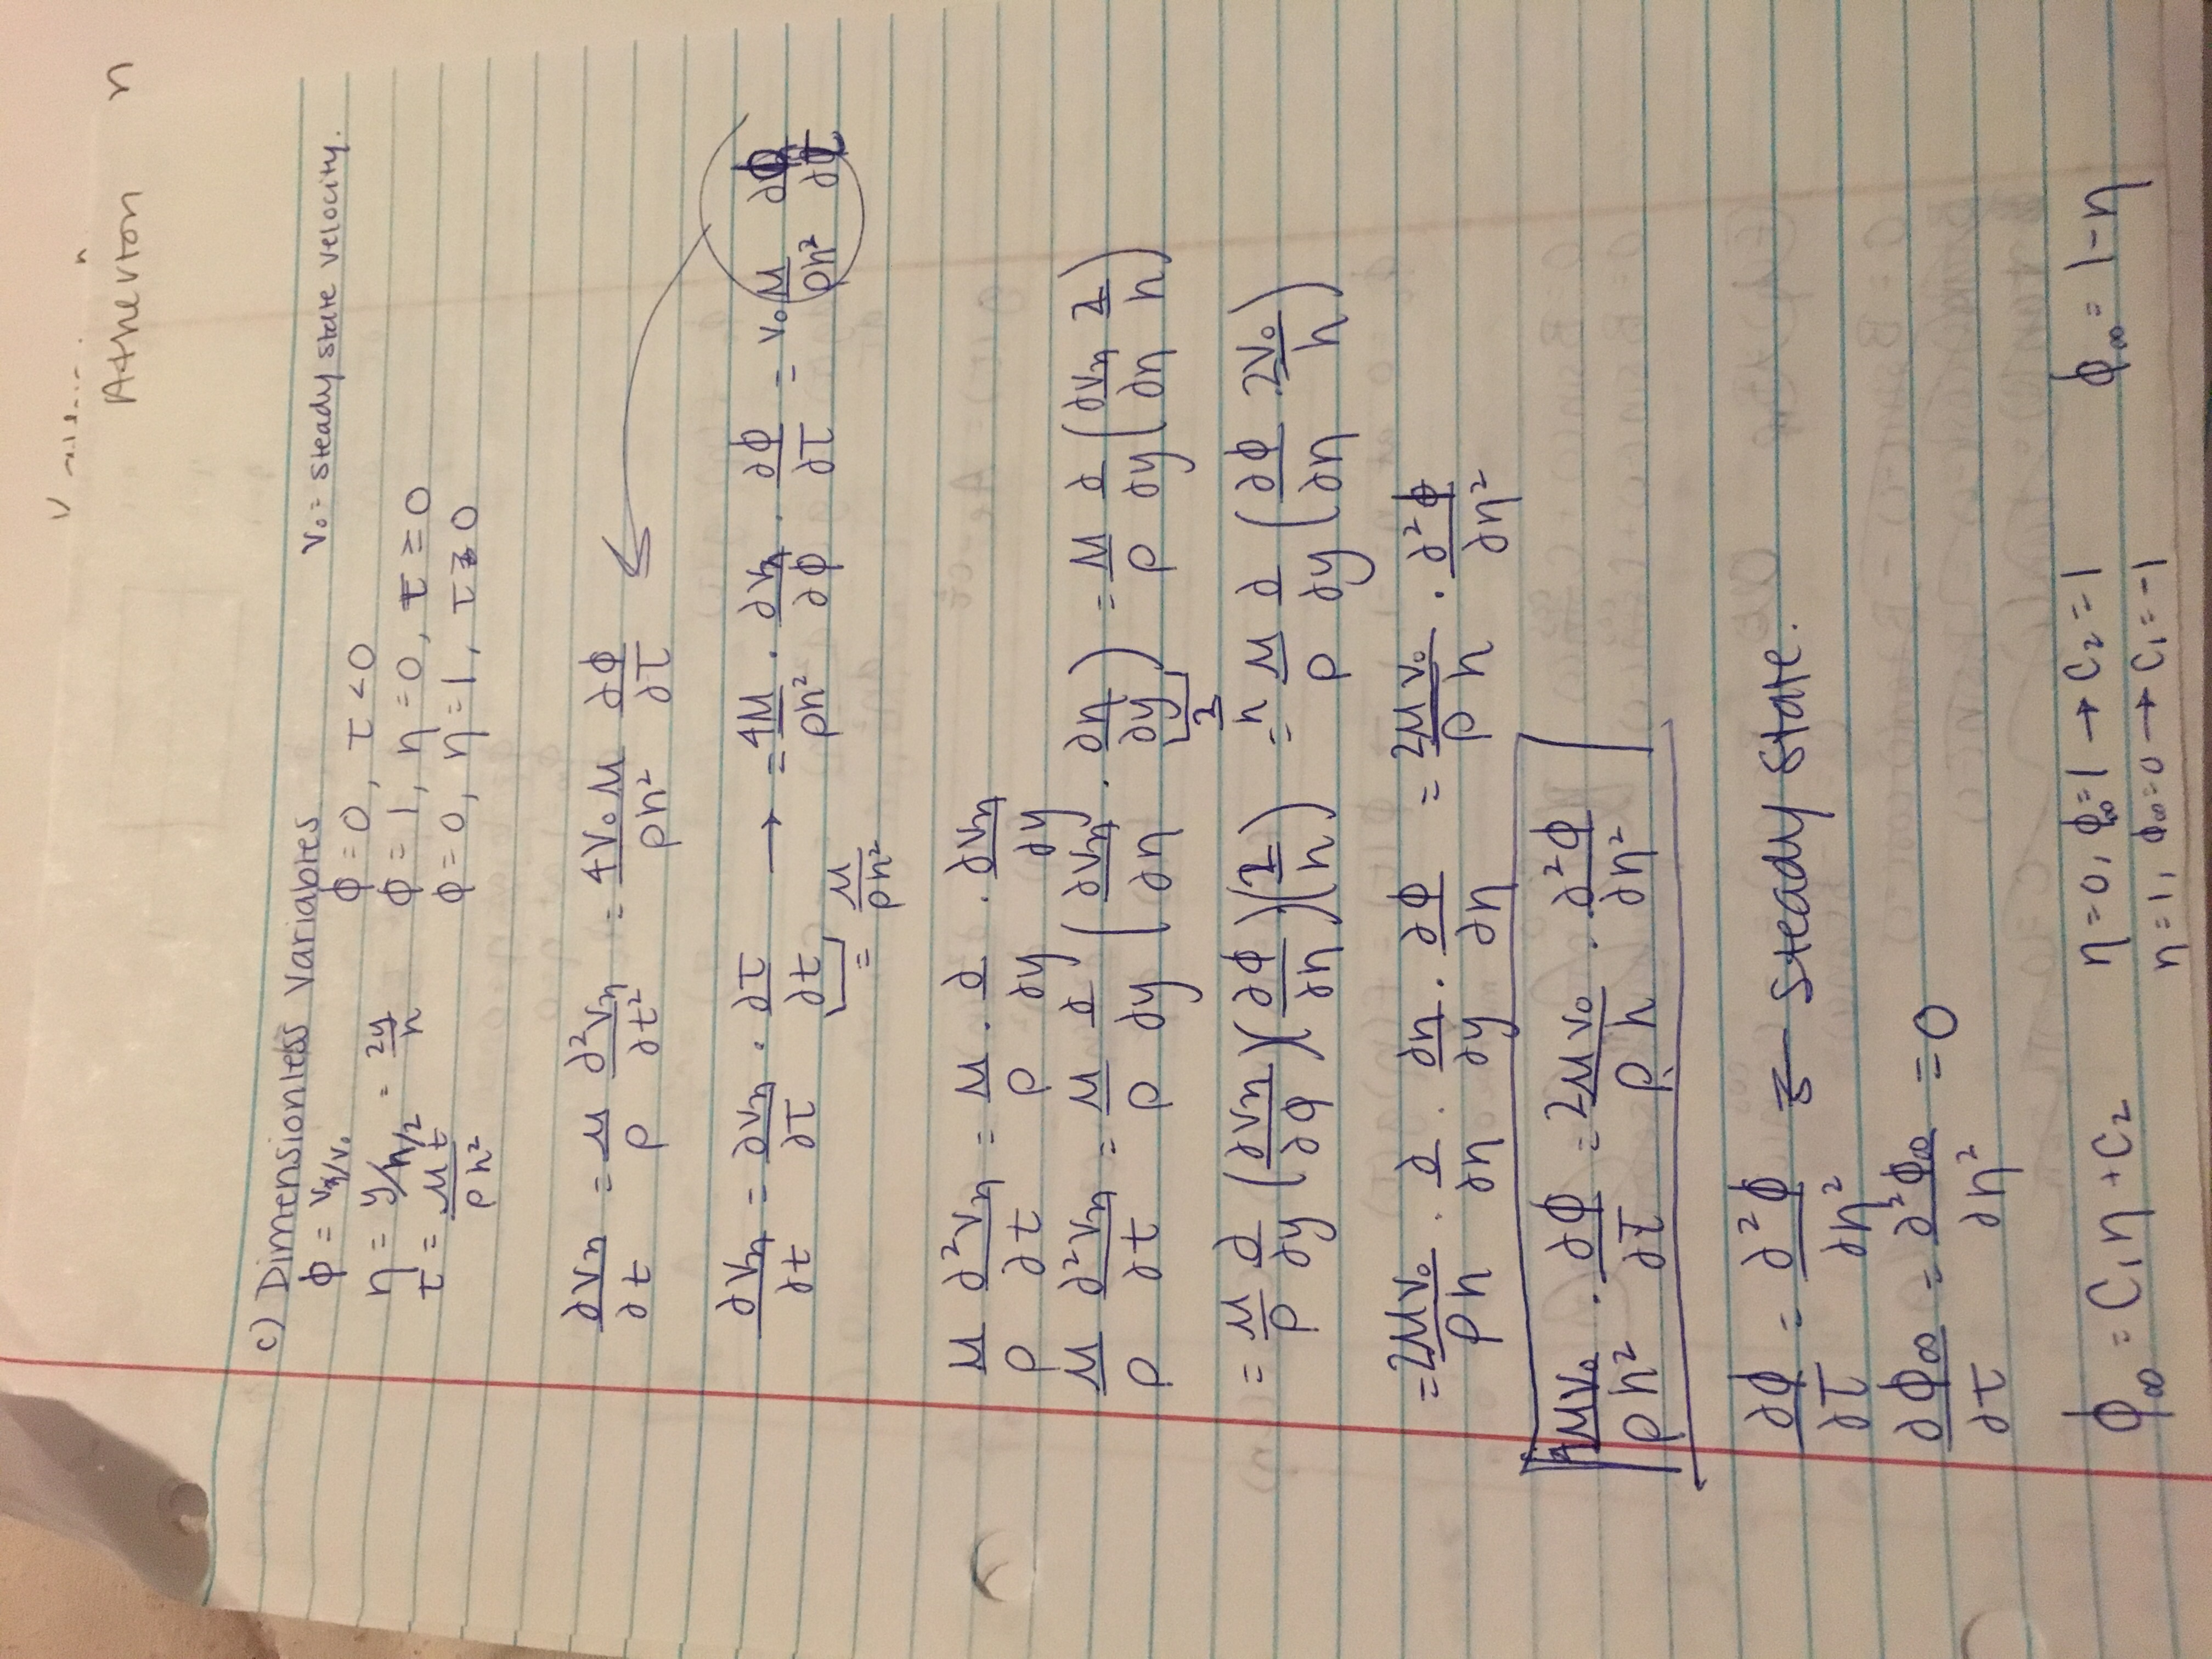 Atherton n
c) Dimensionless Variables
V₀ = steady state velocity.
ϕ = Vx/V₀
ϕ = 0, τ < 0
η = y/h/2 = 2y/h
ϕ = 1, η = 0, τ ≥ 0
τ = μt/ρh²
ϕ = 0, η = 1, τ ≥ 0
∂Vη/∂t = μ/ρ ∂²Vη/∂t² = 4V₀μ/ρh² ∂ϕ/∂τ
∂Vη/∂t = ∂Vη/∂τ · ∂τ/∂t → = 4μ/ρh² · ∂Vη/∂ϕ · ∂ϕ/∂τ = V₀ μ/ρh² ∂ϕ/∂τ
= μ/ρh²
μ/ρ ∂²Vη/∂t = μ/ρ · ∂/∂y · ∂Vη/∂y
μ/ρ ∂²Vη/∂t = μ/ρ ∂/∂y (∂Vη/∂η · ∂η/∂y) = μ/ρ ∂/∂y (∂Vη/∂η 2/h)
2/h
= μ/ρ ∂/∂y (∂Vη/∂ϕ)(∂ϕ/∂η)(2/h) = μ/ρ ∂/∂y (∂ϕ/∂η 2V₀/h)
= 2μV₀/ρh · ∂/∂η · ∂η/∂y · ∂ϕ/∂η = 2μV₀/ρh · ∂²ϕ/∂η²
4μV₀/ρh² · ∂ϕ/∂τ = 2μV₀/ρh · ∂²ϕ/∂η²
∂ϕ/∂τ = ∂²ϕ/∂η² Steady State.
∂ϕ∞/∂τ = ∂²ϕ∞/∂η² = 0
ϕ∞ = C₁η + C₂
η = 0, ϕ∞ = 1 → C₂ = 1
η = 1, ϕ∞ = 0 → C₁ = -1
ϕ∞ = 1 - η